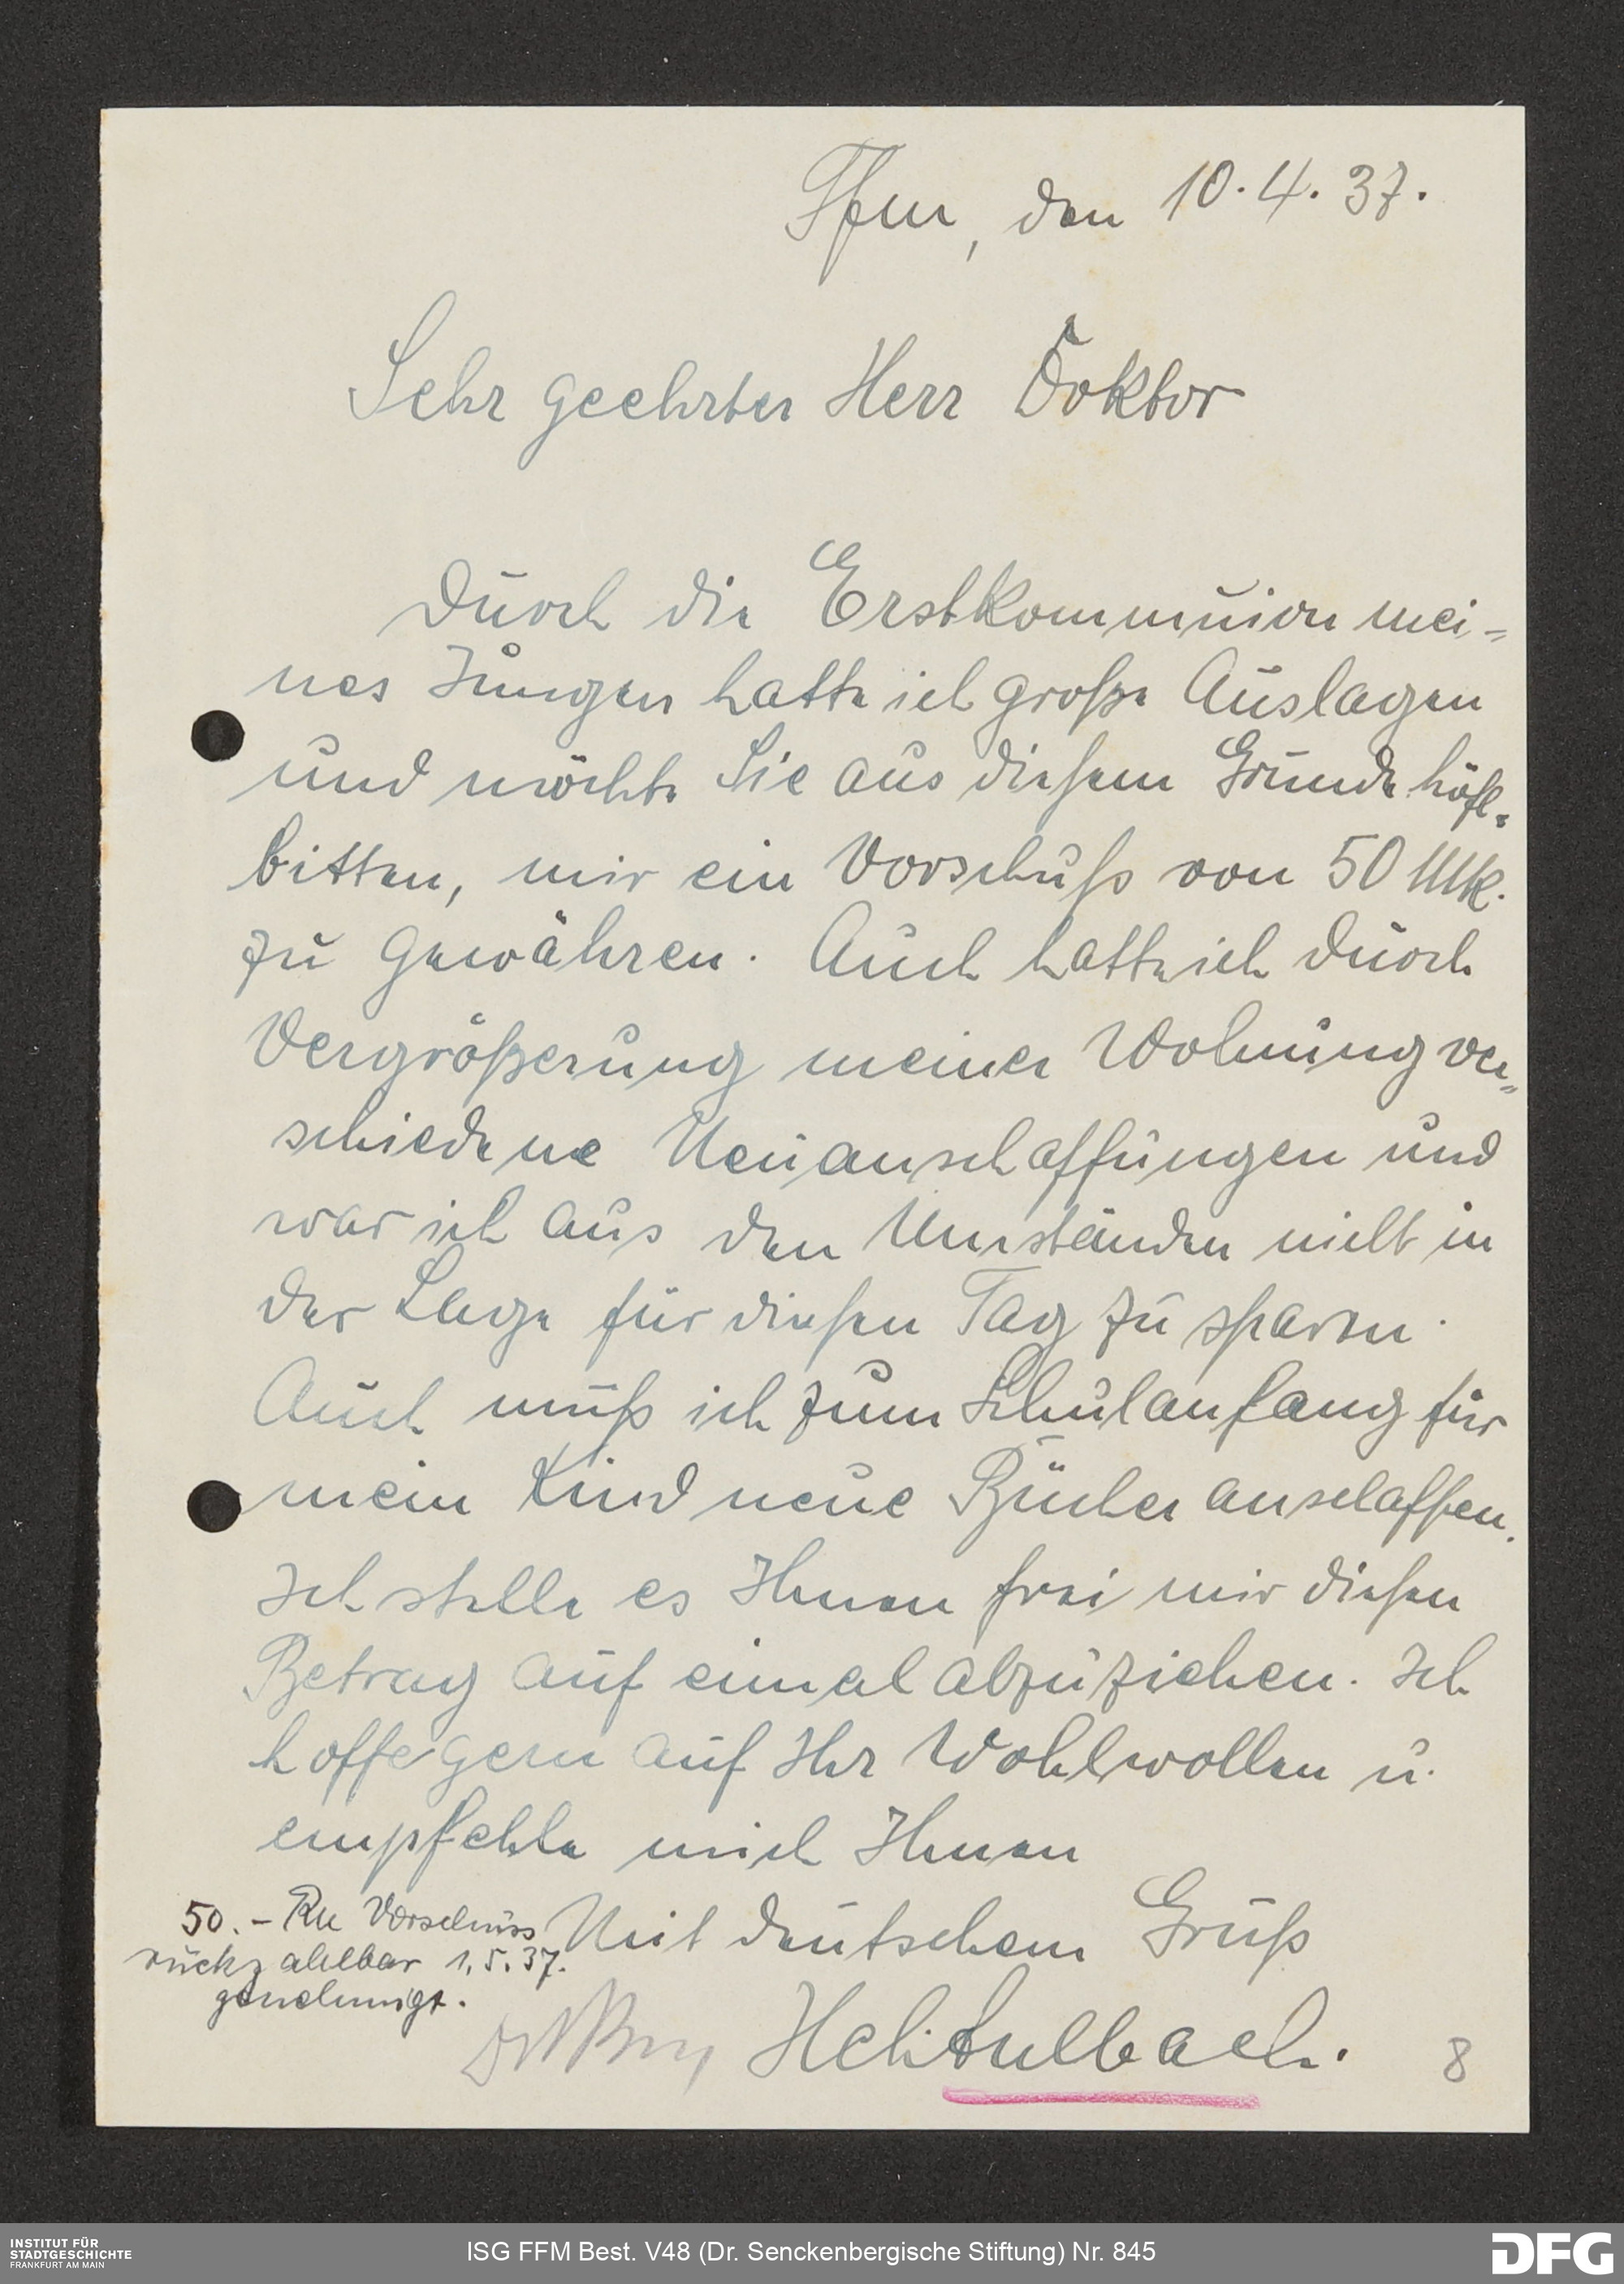 Ffm, den 10.4.37.
Sehr geehrter Herr Doktor
Durch die Erstkommunion mei-
nes Jungen hatte ich große Auslagen
und möchte Sie aus diesem Grunde höfl.
bitten, mir ein Vorschuß von 50 Mk.
zu gewähren. Auch hatte ich durch
Vergrößerung meiner Wohnung ver-
schiedene Neuanschaffungen und
war ich aus den Umständen nicht in
der Lage für diesen Tag zu sparen.
Auch muß ich zum Schulanfang für
mein Kind neue Bücher anschaffen.
Ich stelle es Ihnen frei mir diesen
Betrag auf einmal abzuziehen. Ich
hoffe gern auf Ihr Wohlwollen u.
empfehle mich Ihnen
Mit deutschem Gruß
50.- RM Vorschuss
rückzahlbar 1.5.37.
genehmigt.
8
INSTITUT FÜR
STADTGESCHICHTE
FRANKFURT AM MAIN
ISG FFM Best. V48 (Dr. Senckenbergische Stiftung) Nr. 845
DFG